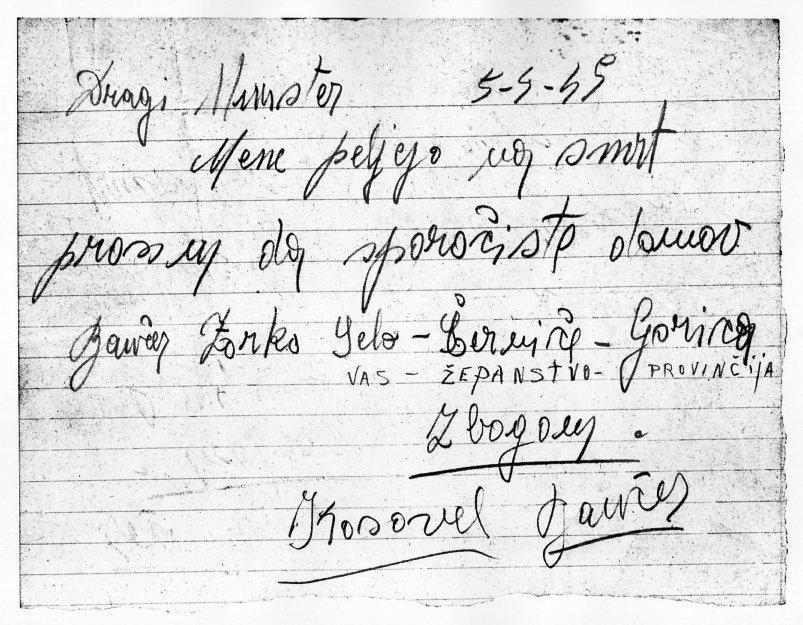 Dragi Minister 5-5-45
Mene peljejo na smrt
prosim da sporočiste domov
Bavčer Zorko Selo - Černiče - Gorica
VAS - ŽEPANSTVO - PROVINČIJA
Zbogom.
Kosovel Bavčer